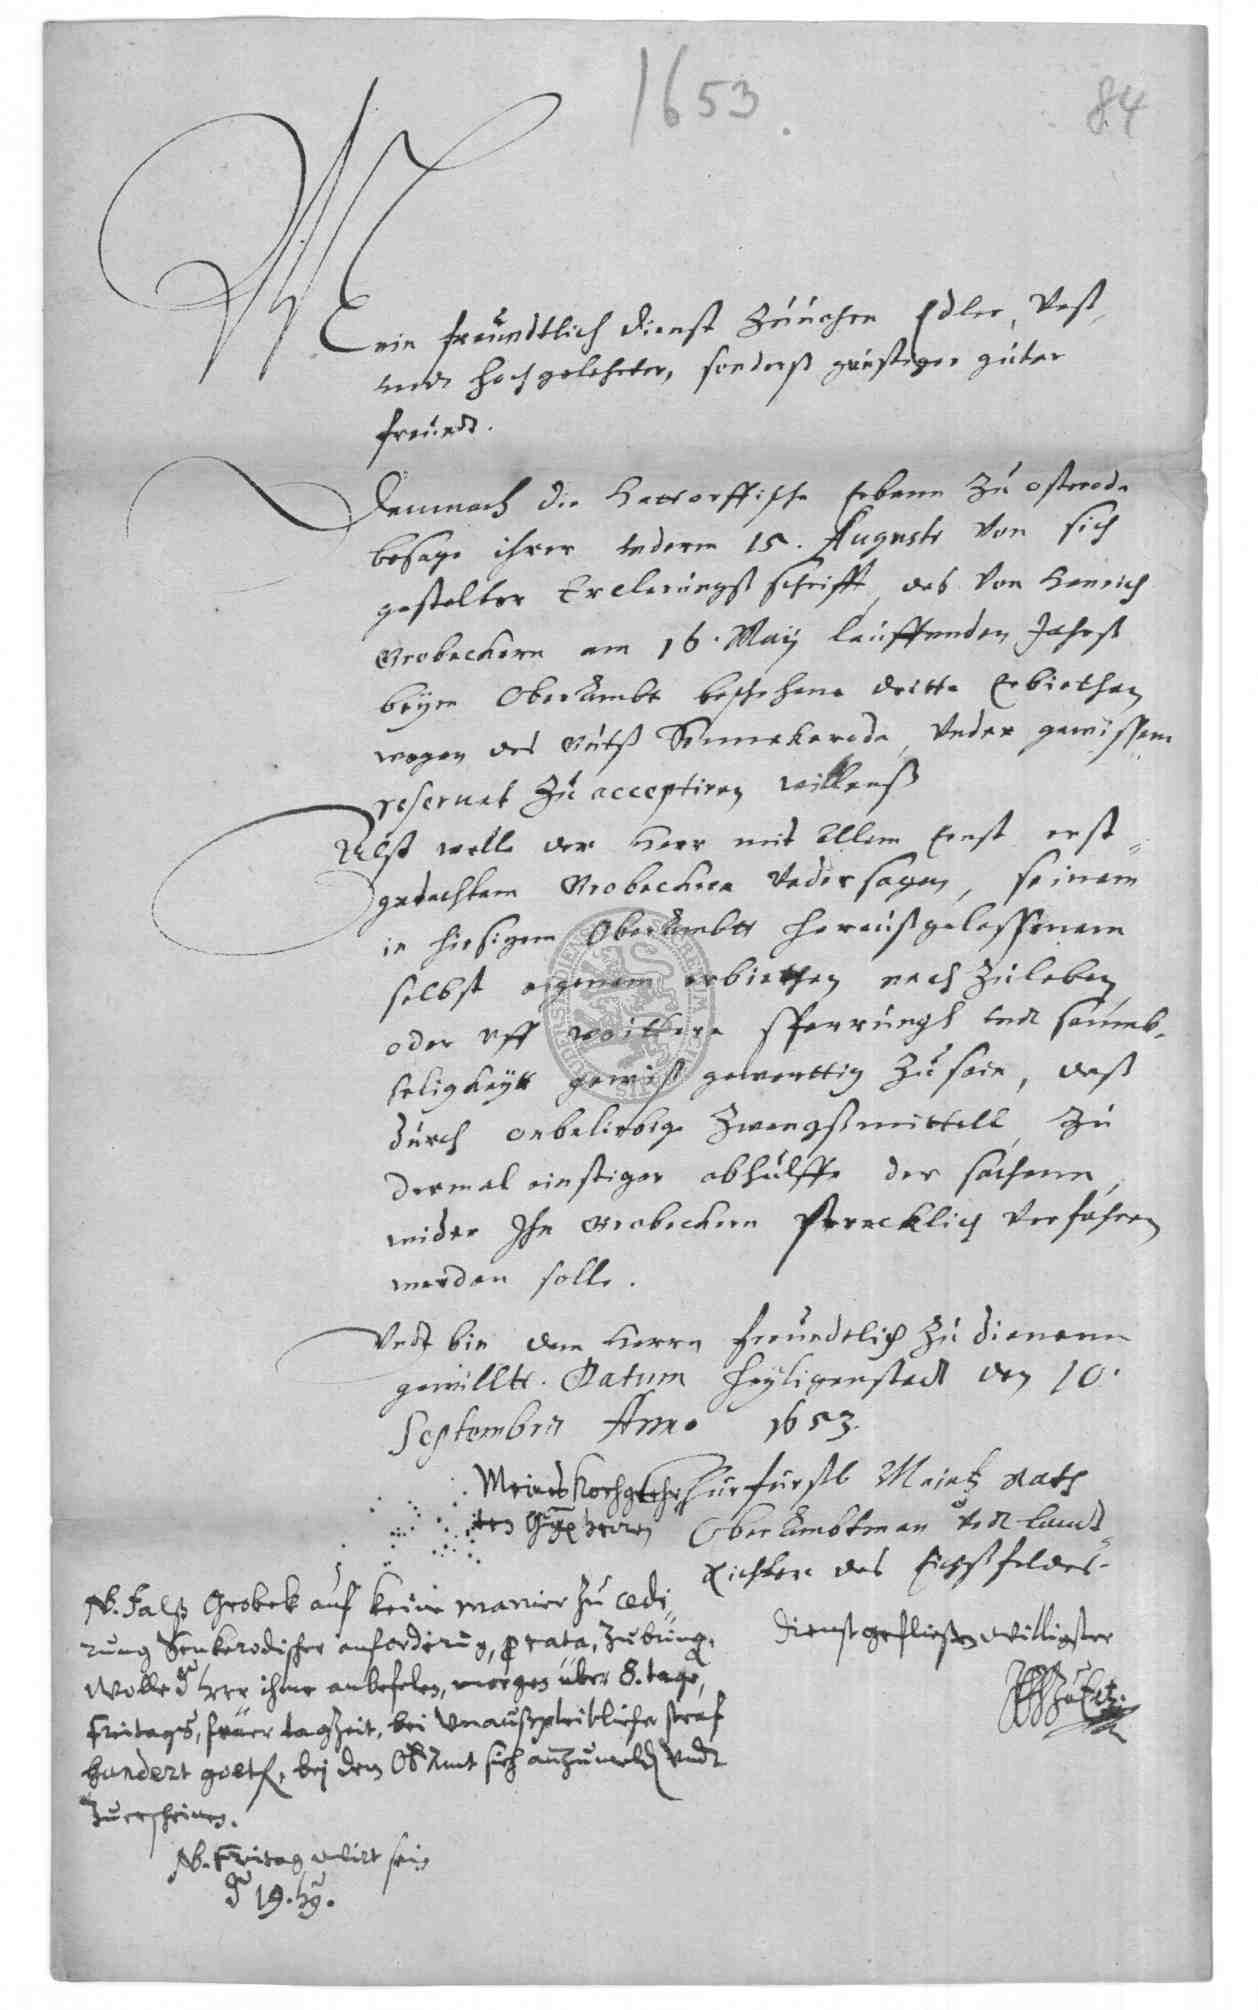 1653.
84
Mein freundtlich dienst Zuuohrn Edler, Vest
vndt Hochgelehrter, sonderß günstiger guter
freundt.
Demnach die Hattorffische Erbenn Zu osteroda
besage ihrer vnderm 15. Augusti Von sich
gestelter Erclerungß schrifft, das Von Henrich
Grobeckern am 16. Maij lauffenden Jahrß
beym Oberambt beschehene dritte Erbiethen
wegen des Gutß Sennekeroda, Vnder gewissem
reseruat Zu acceptiren willenß
Alß wolle der Herr mit allem Ernst erst
gedachtem Grobecker Vndersagen, seinem
in hiesigem Oberambtt heraußgelassenem
selbst eigenem erbiethen nach Zuleben
oder vff weittere sperrungh vndt saumb,
seligkeytt gewiß gewerttig Zu sein, daß
durch onbeliebige Zwangßmittell Zu
dermal einstiger abhülffe der sachenn,
wider Ihn Grobeckern starcklich Verfahren
werden solle.
Vndt bin dem Herrn freundtlich Zu dienenn
gewillt. Datum Heyligenstadt den 10.
Septembris Anno 1653.
Meines Hochgelehr
ten herren
Churfürstl Maintz Rath
Oberambtman vndt Landt
Richter des Eichßfeldes.
Dienstgefließen williger
NB. Falß Grobek auf keine manier zu cedi
rung Senkerodischer anforderung, pro rata, zu bringen,
wolle d Herr ihme anbefelen, morgen über 8. tage,
Freitags, früer tagzeit, bei Vnaußpleiblicher straf
hundert goltfl, bej dem Ob Amt sich anzumelden Vndt
Zuerscheinen.
NB. Freitag wirt sein
d 19. hj.